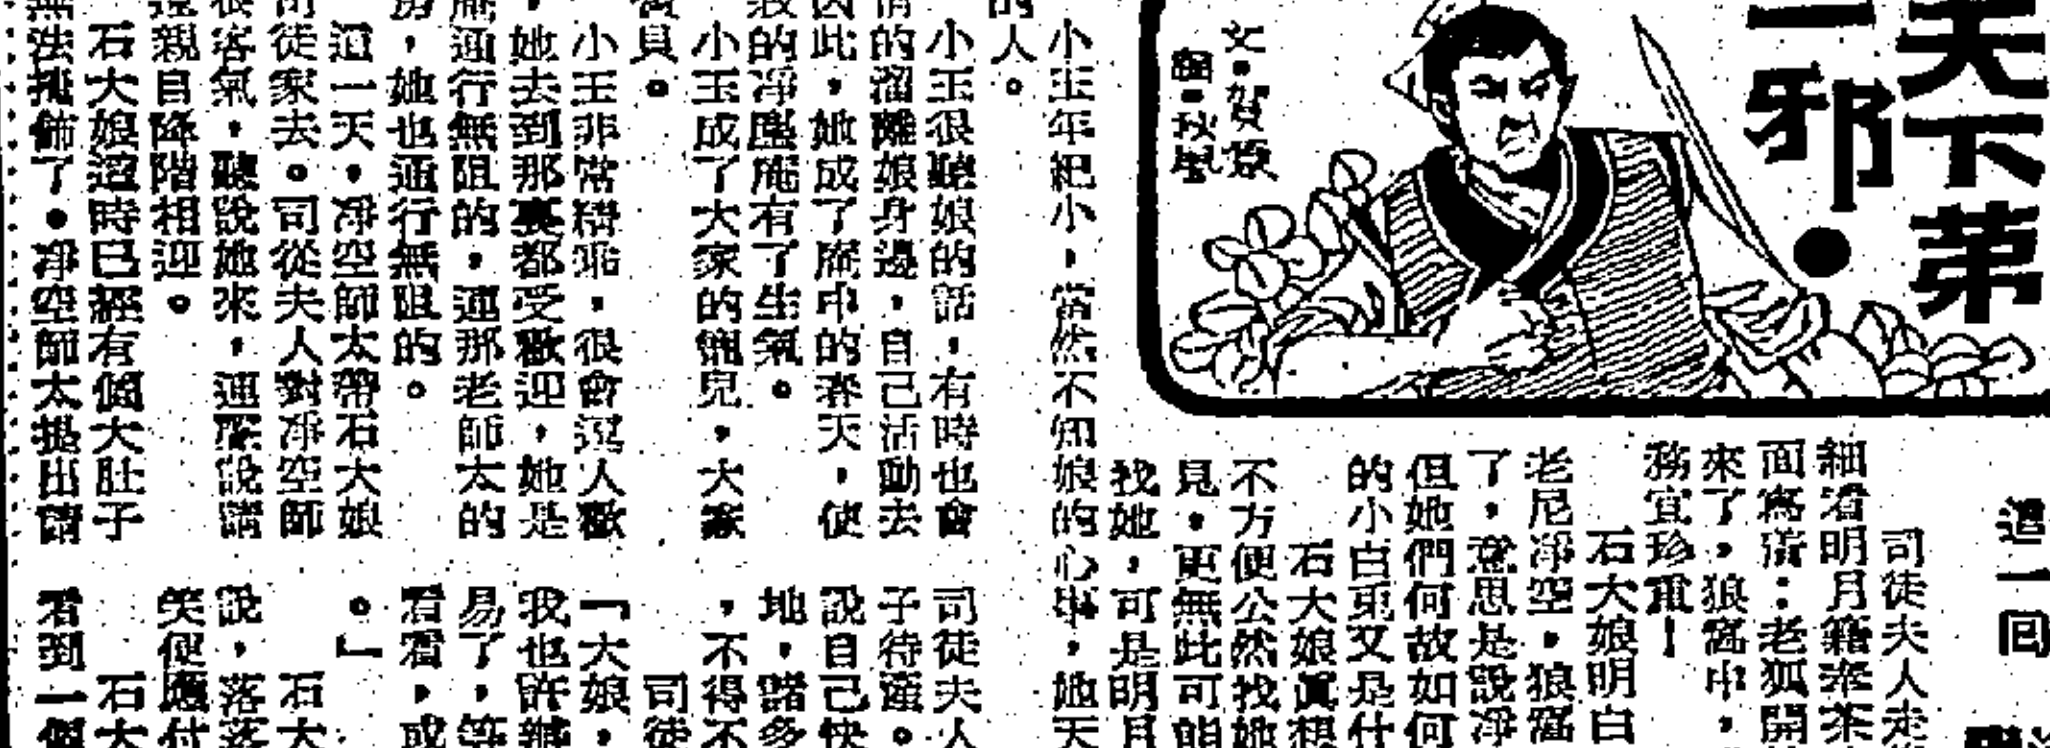 天下第
一邪●
文●賀
這一回
司徒夫人走
細看明月藉奉茶
面寫着：老狐開
來了，狼窩中，
務宜珍重！
石大娘明白
老尼凈空，狼窩
了，意思是說凈
但她們何故如何
的小白兎又是什
石大娘眞想
不方便公然找她
見，更無此可能
找她，可是明月
小玉年紀小，當然不知娘的心事，她天
的人。
小玉很聽娘的話，有時也會
情的溜離娘身邊，自己活動去
因此，她成了庵中的春天，使
寂的凈塵庵有了生氣。
小玉成了大家的寵兒，大家
員。
小玉非常精乖，很會逗人歡
，她去到那裏都受歡迎，她是
庵通行無阻的，連那老師太的
房，她也通行無阻的。
這一天，凈空師太帶石大娘
司徒家去。司徒夫人對凈空師
很客氣，聽說她來，連聲說請
還親自降階相迎。
石大娘這時已經有個大肚子
無法掩飾了●凈空師太提出請
司徒夫人
子待產。
說自己快
地，諸多
，不得不
司徒
「大娘，
我也許辦
易了，等
看看，或
。」
石大
說，落落
笑便應付
石大
看到一個